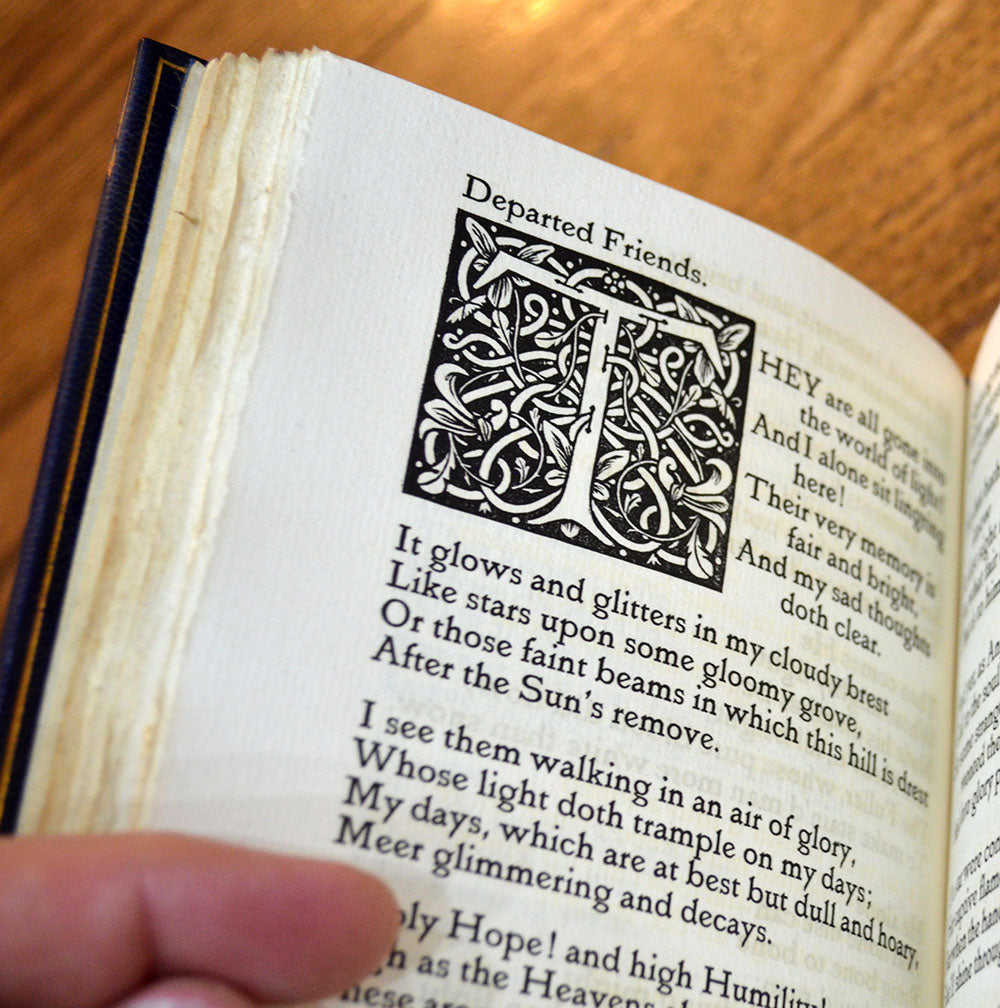 Departed Friends.
THEY are all gone into
the world of light!
And I alone sit lingring
here!
Their very memory is
fair and bright,
And my sad thoughts
doth clear.
It glows and glitters in my cloudy brest
Like stars upon some gloomy grove,
Or those faint beams in which this hill is drest
After the Sun's remove.
I see them walking in an air of glory,
Whose light doth trample on my days;
My days, which are at best but dull and hoary,
Meer glimmering and decays.
Hope! and high Humility!
as the Heavens